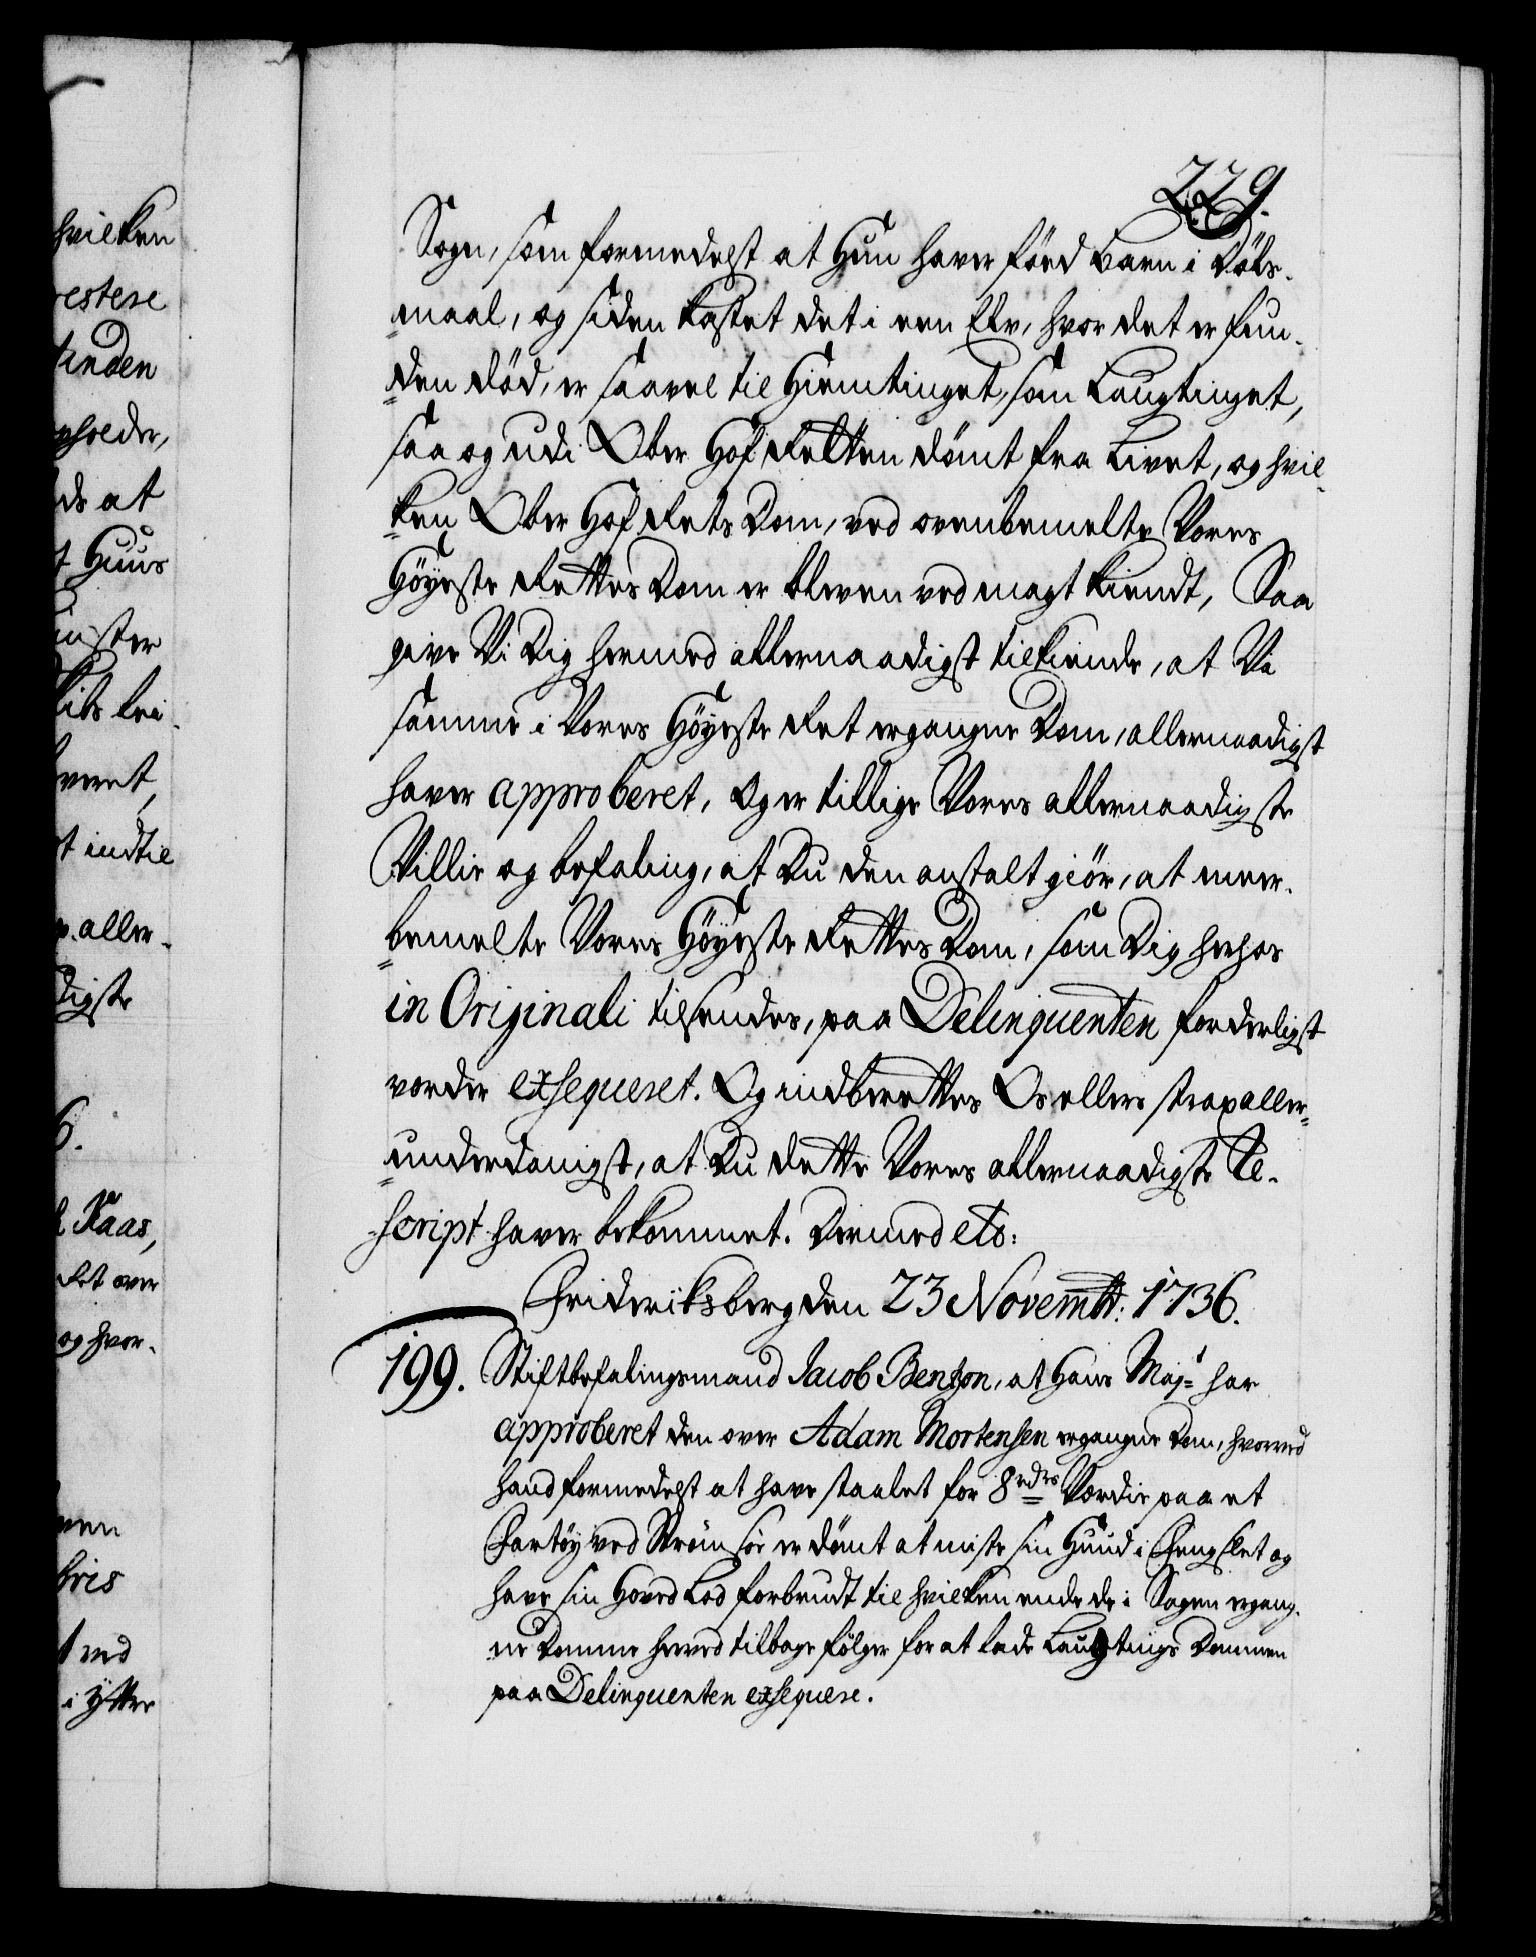 229.
Sogn, som formedelst at Hun haver föed Barn i Dölgs-
maal, og siden kastet det i een Elv, hvor det er fun-
den död, er saavel til Hiemtinget, som Laugtinget,
saa og udi Ober Hof Retten dömt fra Livet, og hvil-
ken Ober Hof Rets Dom, ved ovenbemelte Vores
Höyeste Rettes Dom er bleven ved magt kiendt, Saa
give Vi Dig hermed allernaadigst tilkiende, at Vi
samme i Vores Höyeste Ret ergangne Dom, allernaadigst
haver approberet, Og er tillige Vores allernaadigste
Villie og befaling, at Du den anstalt giör, at meer-
bemelte Vores Höyeste Rettes Dom, som Dig herhos
in Originali tilsendes, paa Delinquenten forderligst
vorder exseqveret. Og indberettes Os ellers strax aller-
underdanigst, at Du dette Vores allernaadigste Re-
script haver bekommet. Dermed etc:
Friderichsberg den 23 Novembr: 1736.
199. Stiftbefalingsmand Jacob Benzon, at Hans Majt har
approberet den over Adam Mortensen ergangne Dom, hvorved
hand formedelst at have staalet for 8 rdrs Værdie paa et
Fartöy ved Strömsöe er dömt at miste sin Huud i Fengslet og
have sin Hoved Lod forbrudt til hvilken ende de i Sagen ergang-
ne Domme herved tilbage fölger for at lade Laugtings Dommen
paa Delinquenten exseqvere.
hvilken
restere
inden
at
Huus
indtil
aller-
digste
6.
Kaas,
Ret over
og hvor-
ved
i Ytter